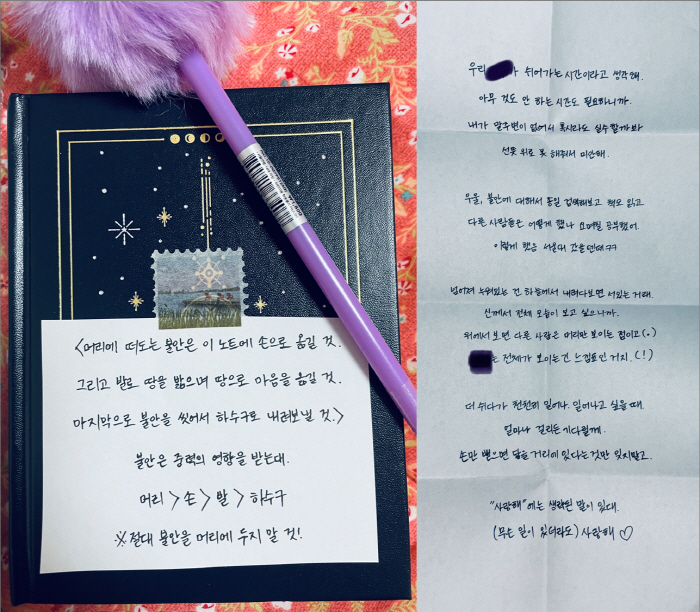 <머리에 떠도는 불안은 이 노트에 손으로 옮길 것.
그리고 발로 땅을 밟으며 땅으로 마음을 옮길 것.
마지막으로 불안을 씻어서 하수구로 내려보낼 것.>
불안은 중력의 영향을 받는대.
머리 > 손 > 발 > 하수구
※절대 불안을 머리에 두지 말 것!
우리 쉬어가는 시간이라고 생각해.
아무 것도 안 하는 시간도 필요하니까.
내가 말주변이 없어서 혹시라도 실수 할까봐
선뜻 위로 못 해줘서 미안해.
우울, 불안에 대해서 매일 검색해보고 책도 읽고
다른 사람들은 어떻게 했나 요며칠 공부했어.
이렇게 했음 서울대 갔을텐데ㅋㅋ
넘어져 누워있는 건 하늘에서 내려다보면 서있는 거래.
신께서 전체 모습이 보고 싶으니까.
위에서 보면 다른 사람은 머리만 보이는 점이고(.)
는 전체가 보이는 건 느낌표인 거지.(!)
더 쉬다가 천천히 일어나. 일어나고 싶을 때.
얼마나 걸리든 기다릴게.
손만 뻗으면 닿을 거리에 있다는 것만 잊지말고.
"사랑해"에는 생략된 말이 있대.
(무슨 일이 있더라도) 사랑해 ♡